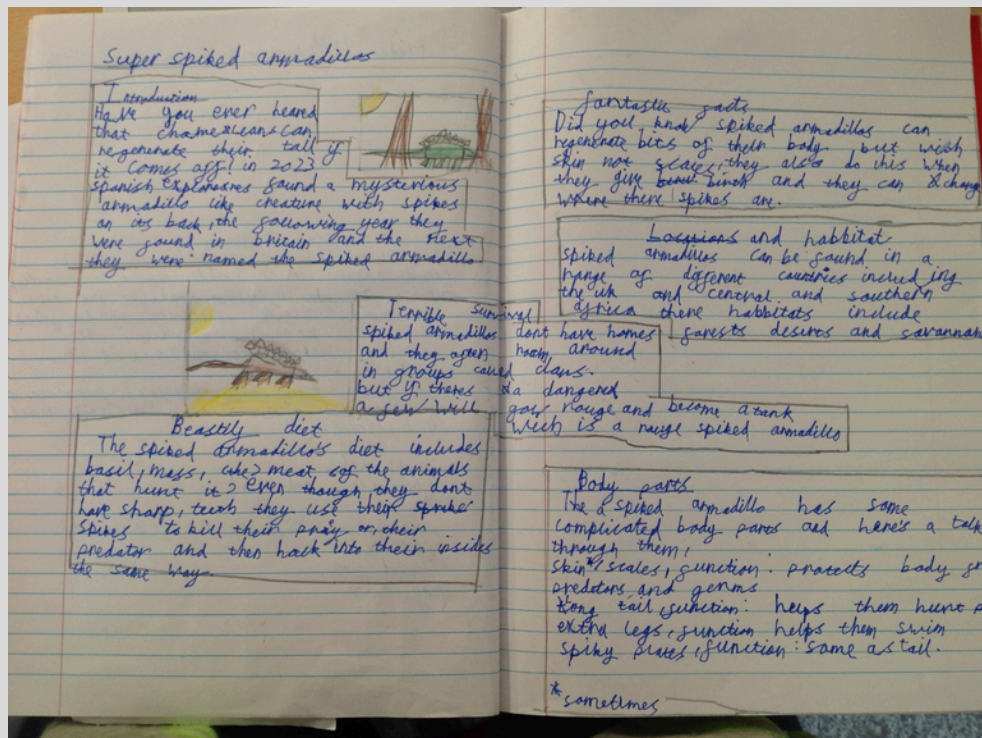 Super spiked armadillos
Introduction
Have you ever heared
that chamexleans can
regenerate their tail if
it comes off! in 2023
spanish explorores found a mysterious
armadillo like creature with spikes
on its back, the following year they
were found in britain and the next
they were named the spiked armadillo
Terrible survival
spiked armadillos dont have homes
and they often roam, around
in groups called clans.
but if theres a dangered
a few will gow rouge and become a tank
wich is a rouge spiked armadillo
Beastly diet
The spiked armadillo's diet includes
basil, moss, (the) meat (of the animals
that hunt it) even though they dont
have sharp, teeth they use their spike
spikes to kill their pray or, their
predator and then hack into their insides
the same way.
fantastic facts
Did you know spiked armadillos can
regenerate bits of their body but with
skin not scales, they also do this when
they give birth and they can change
where there spikes are.
Locations and habbitat
spiked armadillos can be found in a
range of different countries including
the uk and central and southern
africa there habbitats include
forests desirts and savannah
Body parts
The a spiked armadillo has some
complicated body parts and here's a talk
through them,
skin*, scales, function: protects body
predators and germs
long tail, function: helps them hunt
extra legs, function helps them swim
spiky plates, function: same as tail.
*sometimes